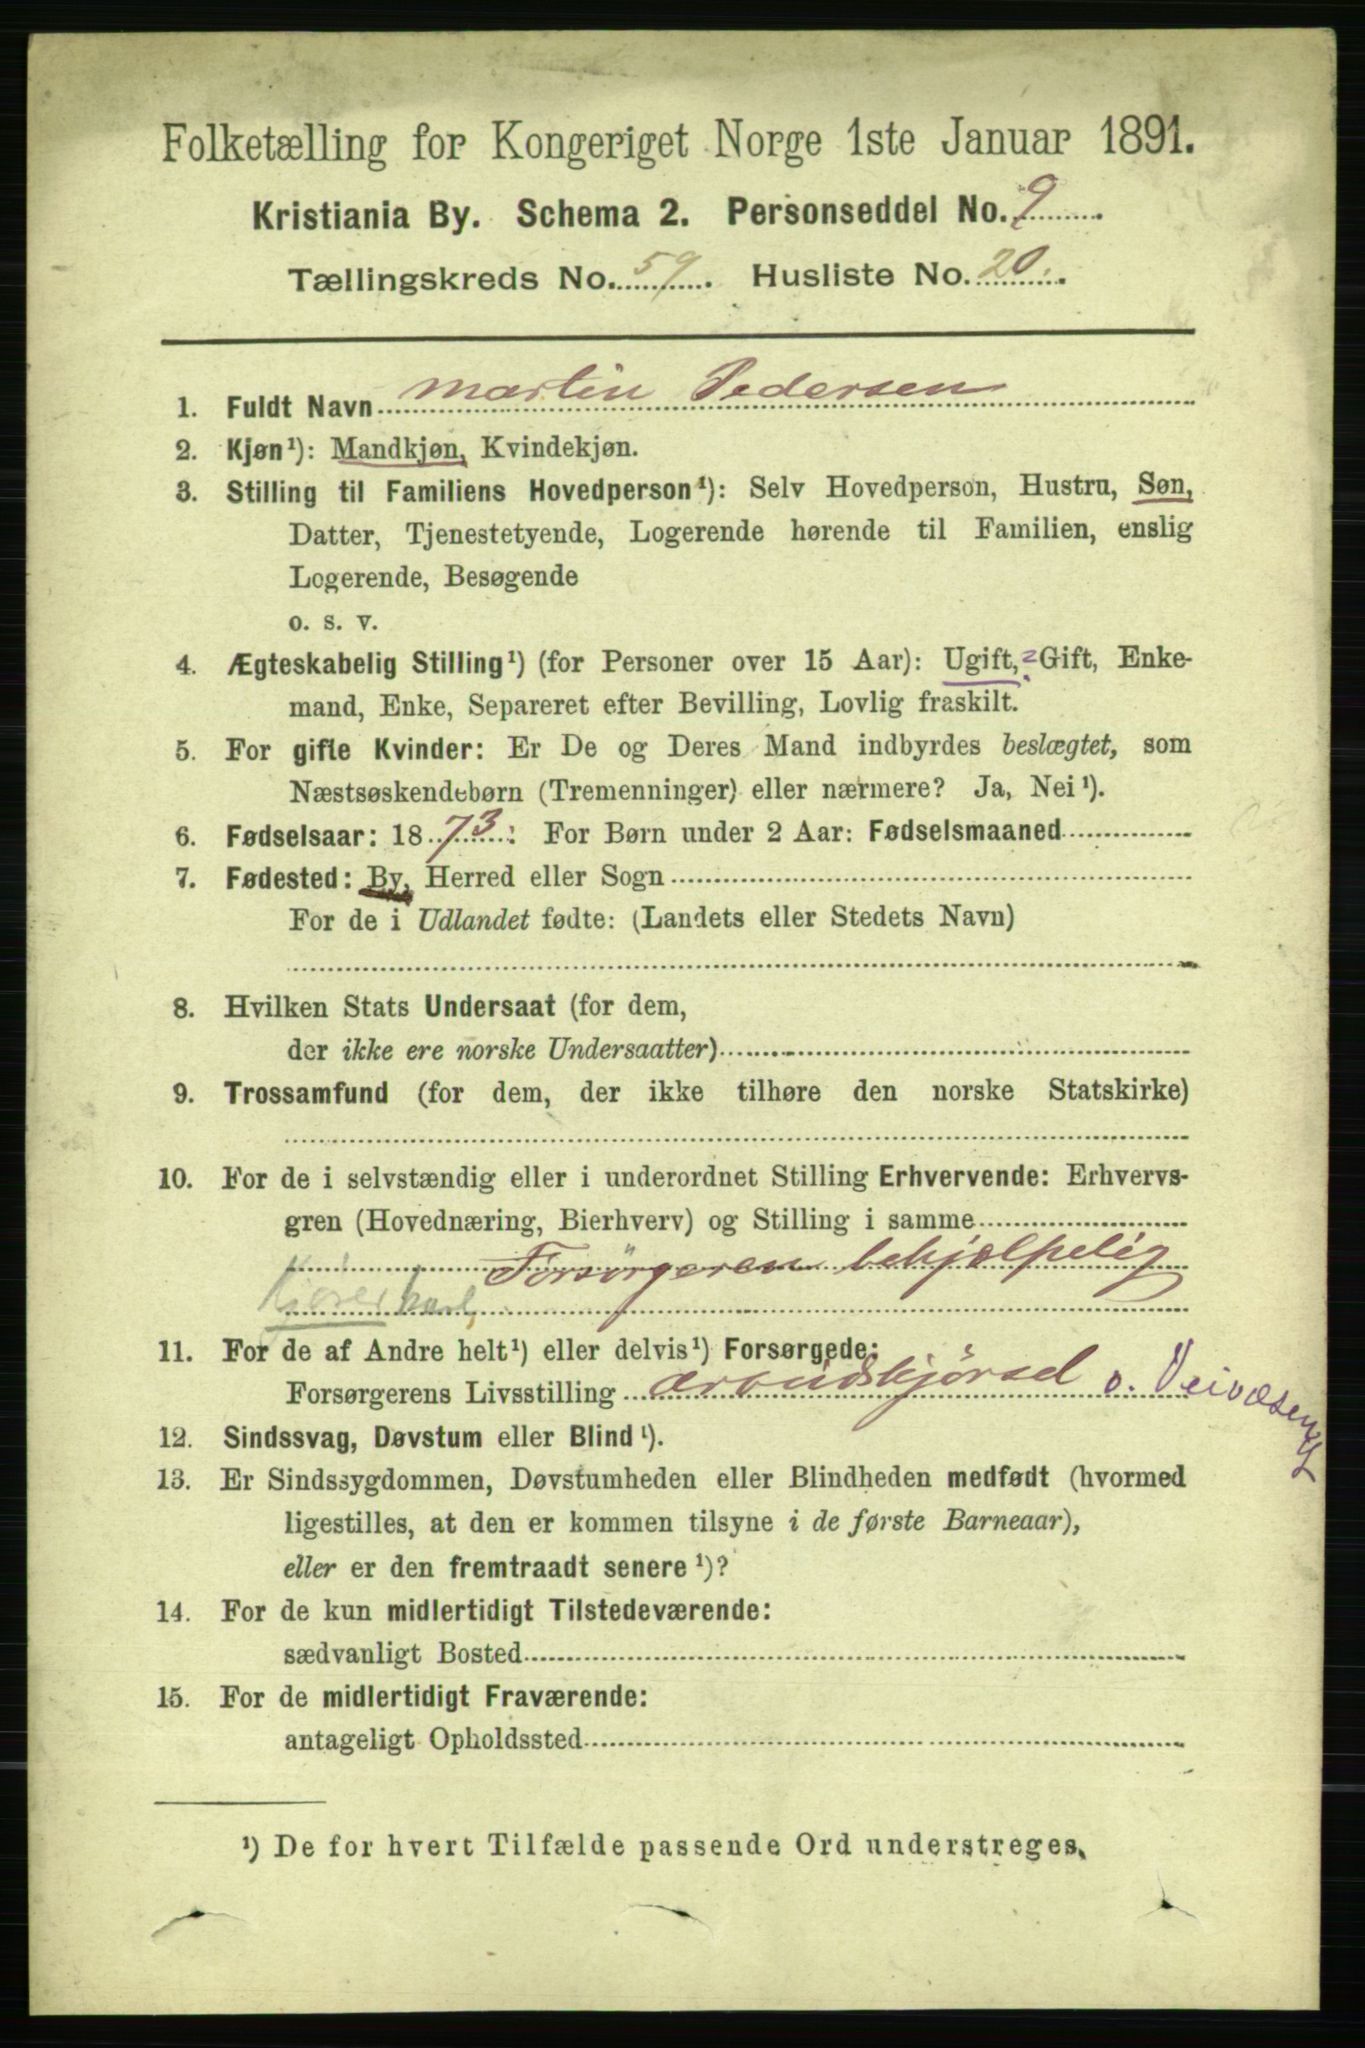 Folketælling for Kongeriget Norge 1ste Januar 1891.
Kristiania By. Schema 2. Personseddel No. 9
Tællingskreds No. 59. Husliste No. 20.
1. Fuldt Navn Martin Pedersen
2. Kjøn¹): Mandkjøn, Kvindekjøn.
3. Stilling til Familiens Hovedperson¹): Selv Hovedperson, Hustru, Søn,
Datter, Tjenestetyende, Logerende hørende til Familien, enslig
Logerende, Besøgende
o. s. v.
4. Ægteskabelig Stilling¹) (for Personer over 15 Aar): Ugift, ? Gift, Enke-
mand, Enke, Separeret efter Bevilling, Lovlig fraskilt.
5. For gifte Kvinder: Er De og Deres Mand indbyrdes beslægtet, som
Næstsøskendebørn (Tremenninger) eller nærmere? Ja, Nei¹).
6. Fødselsaar: 1873. For Børn under 2 Aar: Fødselsmaaned
7. Fødested: By, Herred eller Sogn
For de i Udlandet fødte: (Landets eller Stedets Navn)
8. Hvilken Stats Undersaat (for dem,
der ikke ere norske Undersaatter)
9. Trossamfund (for dem, der ikke tilhøre den norske Statskirke)
10. For de i selvstændig eller i underordnet Stilling Erhvervende: Erhvervs-
gren (Hovednæring, Bierhverv) og Stilling i samme
Forsørgeren behjælpelig
Kjørekarl,
11. For de af Andre helt¹) eller delvis¹) Forsørgede:
Forsørgerens Livsstilling arbeidskjørsel v. Veivæsen
12. Sindssvag, Døvstum eller Blind¹).
13. Er Sindssygdommen, Døvstumheden eller Blindheden medfødt (hvormed
ligestilles, at den er kommen tilsyne i de første Barneaar),
eller er den fremtraadt senere¹)?
14. For de kun midlertidigt Tilstedeværende:
sædvanligt Bosted
15. For de midlertidigt Fraværende:
antageligt Opholdssted
¹) De for hvert Tilfælde passende Ord understreges.